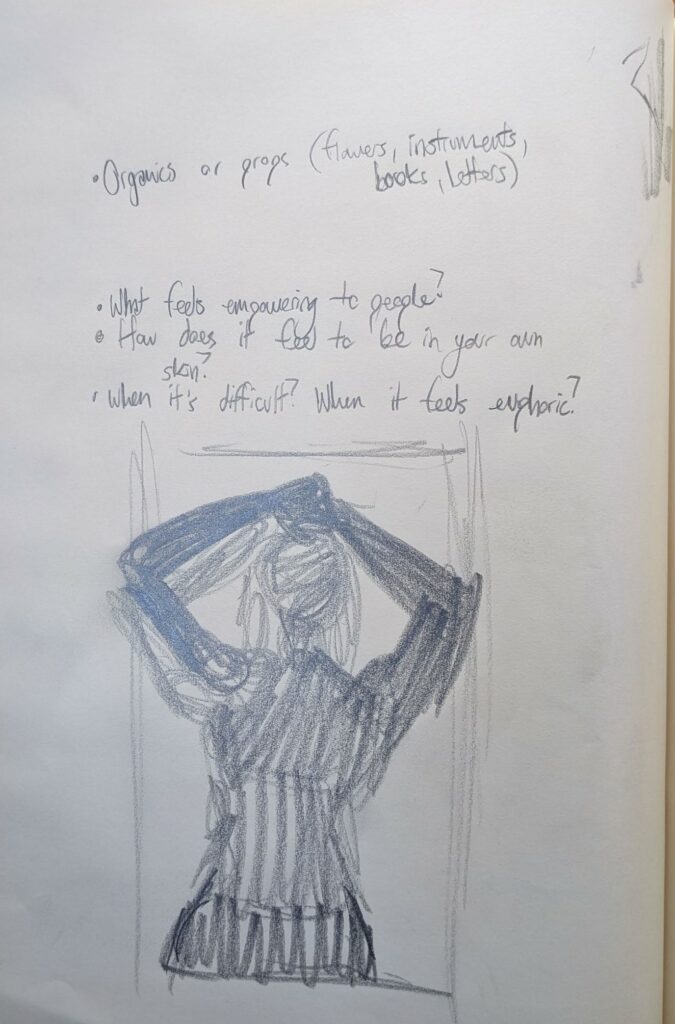 • Organics or props (flowers, instruments,
books, letters)
• What feels empowering to people?
• How does it feel to be in your own
skin?
• When it's difficult? When it feels euphoric?